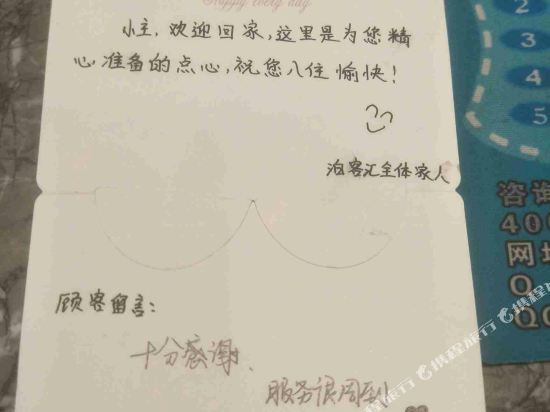 Happy every day
小主，欢迎回家，这里是为您精
心准备的点心，祝您入住愉快！
泊客汇全体家人
顾客留言：
十分感谢、
服务很周到
2
3
4
5
咨询
400
网址
Q
QQ
@携程旅行
@携程旅行